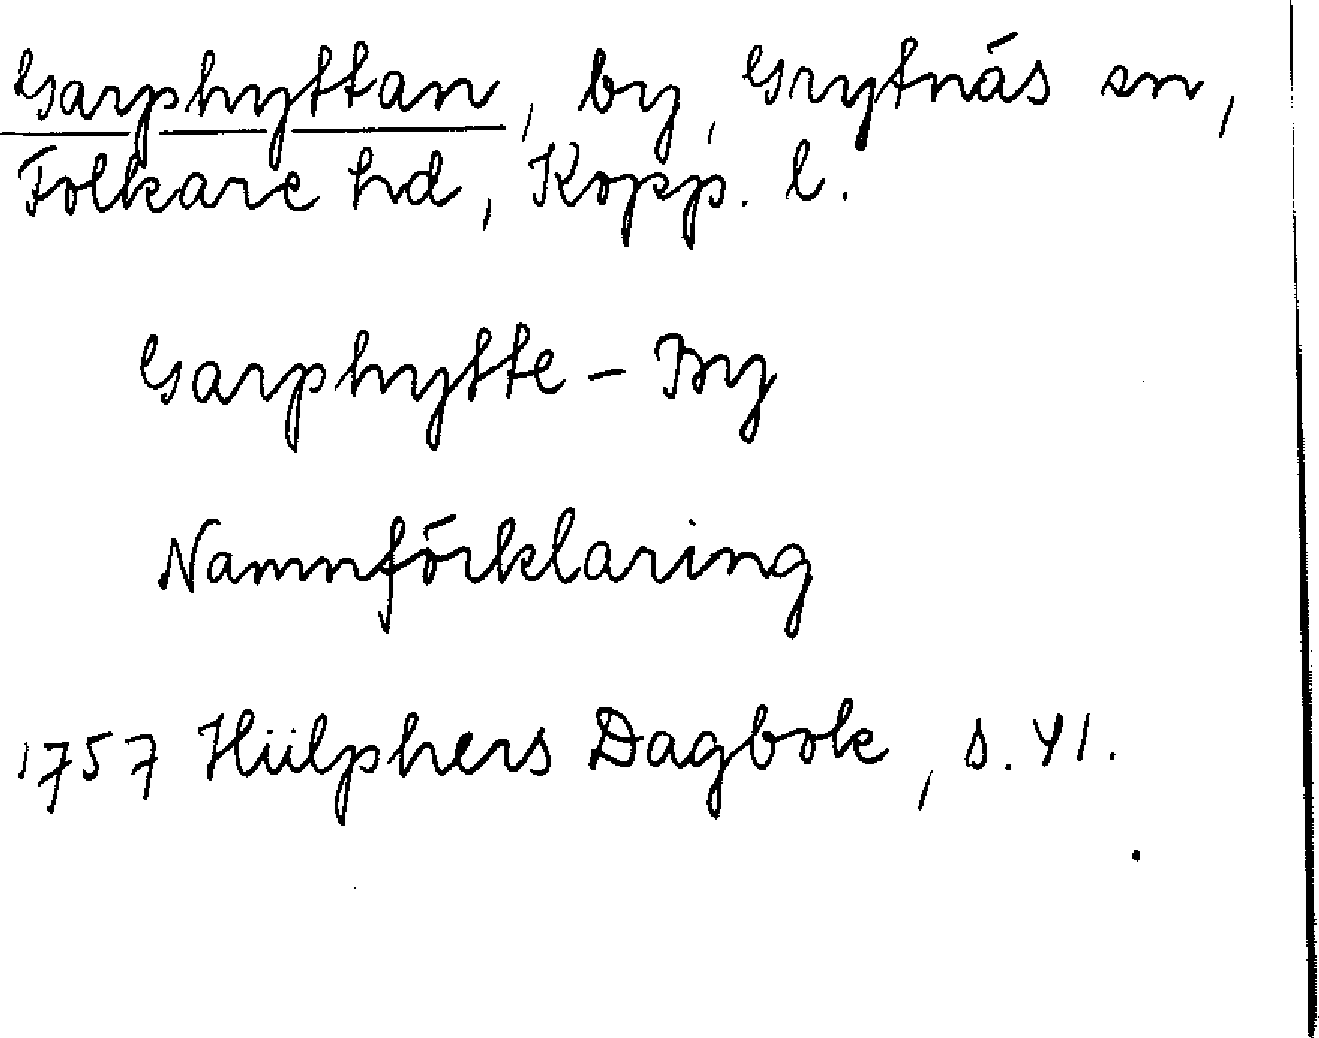 Garphyttan, by, Grytnäs sn,
Folkare hd, Kopp. l.
Garphytte-By
Namnförklaring
1757 Hülphers Dagbok, s. 41.